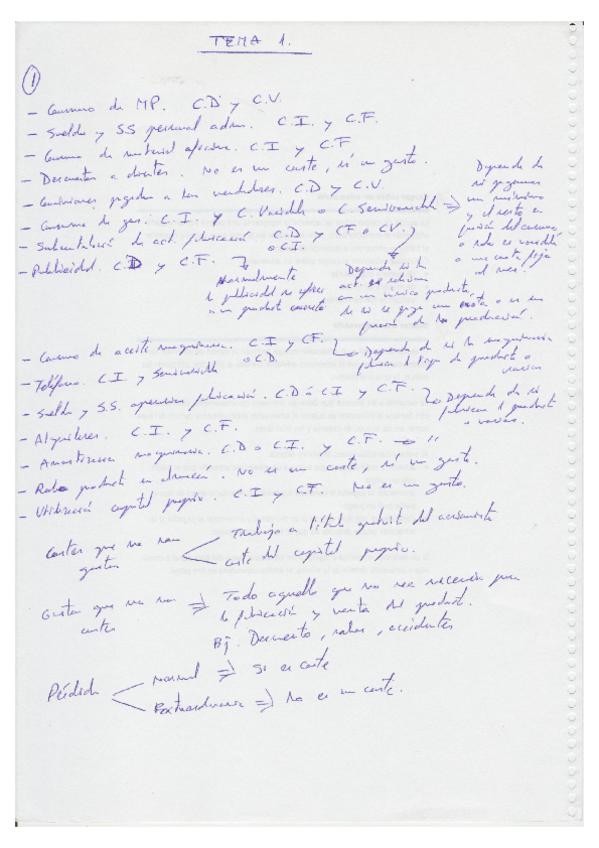 TEMA 1.
1
- Consumo de MP. C.D y C.V.
- Sueldo y SS personal adm. C.I. y C.F.
- Consumo de material oficina. C.I y C.F
- Descuentos a clientes. No es un coste, sí un gasto.
- Comisiones pagadas a los vendedores. C.D y C.V.
- Consumo de gas. C.I. y C. Variable o C. Semivariable ⇒ Depende de si pagamos un mínimo y el resto en función del consumo o solo es variable o una cuota fija al mes.
- Subcontratació de act. fabricació C.D y CF o CV.
o C.I.
Depende si la act. se
en un único producto,
de si se paga una cuota o es en
función de la producción.
- Publicidad. C.D y C.F.
Normalmente
la publicidad se
a un producto concreto
- Consumo de aceite maquinaria. C.I y CF.
o C.D.
Depende de si la maquinaria
fabrica 1 tipo de producto o
varios
- Teléfono. C.I y Semivariable
- Sueldo y S.S. operarios fabricación. C.D ó C.I y C.F.
Depende de si
fabrican 1 producto
o varios.
- Alquileres. C.I. y C.F.
- Amortización maquinaria. C.D o C.I. y C.F. → "
- Robo producto en almacén. No es un coste, sí un gasto.
- Utilización capital propio. C.I y C.F. No es un gasto.
Costes que no son gastos
Trabajo a título gratuito del
coste del capital propio.
Gastos que no son costes ⇒ Todo aquello que no sea necesario para
la fabricación y venta del producto.
Ej. Descuento, robos, accidentes
Pérdida
Normal ⇒ Si es coste
Extraordinaria ⇒ No es un coste.